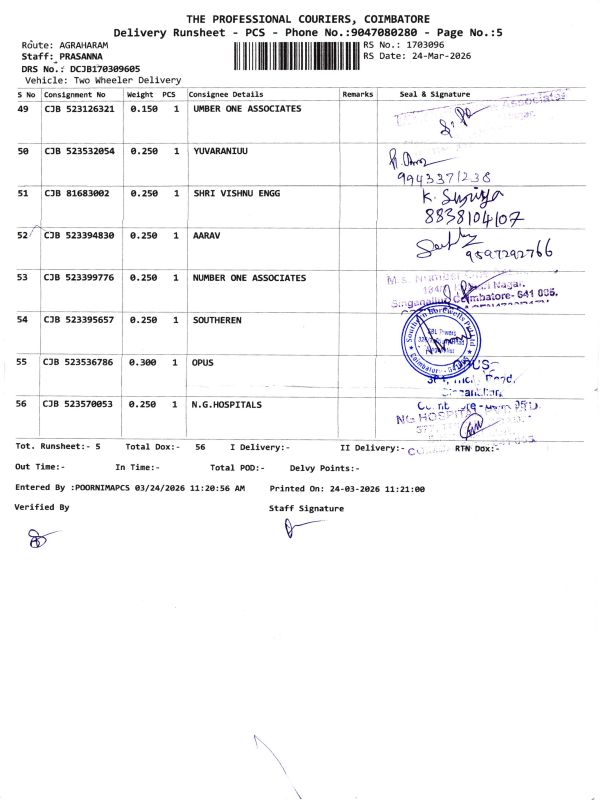 THE PROFESSIONAL COURIERS, COIMBATORE
Delivery Runsheet - PCS - Phone No.:9047080280 - Page No.:5
Route: AGRAHARAM
RS No.: 1703096
Staff: PRASANNA
RS Date: 24-Mar-2026
DRS No.: DCJB170309605
Vehicle: Two Wheeler Delivery
S No Consignment No Weight PCS Consignee Details Remarks Seal & Signature
49 CJB 523126321 0.150 1 UMBER ONE ASSOCIATES
50 CJB 523532054 0.250 1 YUVARANIUU
9943371238
51 CJB 81683002 0.250 1 SHRI VISHNU ENGG
K. Suriya
8838104107
52 CJB 523394830 0.250 1 AARAV
9597292766
53 CJB 523399776 0.250 1 NUMBER ONE ASSOCIATES
M/s. Number One
Nagar,
Singanallur, Coimbatore- 641 005.
54 CJB 523395657 0.250 1 SOUTHEREN
Southern Borewells Pvt Ltd
Coimbatore
55 CJB 523536786 0.300 1 OPUS
OPUS
Road,
56 CJB 523570053 0.250 1 N.G.HOSPITALS
NG HOSPITAL
Tot. Runsheet:- 5 Total Dox:- 56 I Delivery:- II Delivery:- RTN Dox:-
Out Time:- In Time:- Total POD:- Delvy Points:-
Entered By :POORNIMAPCS 03/24/2026 11:20:56 AM Printed On: 24-03-2026 11:21:00
Verified By Staff Signature